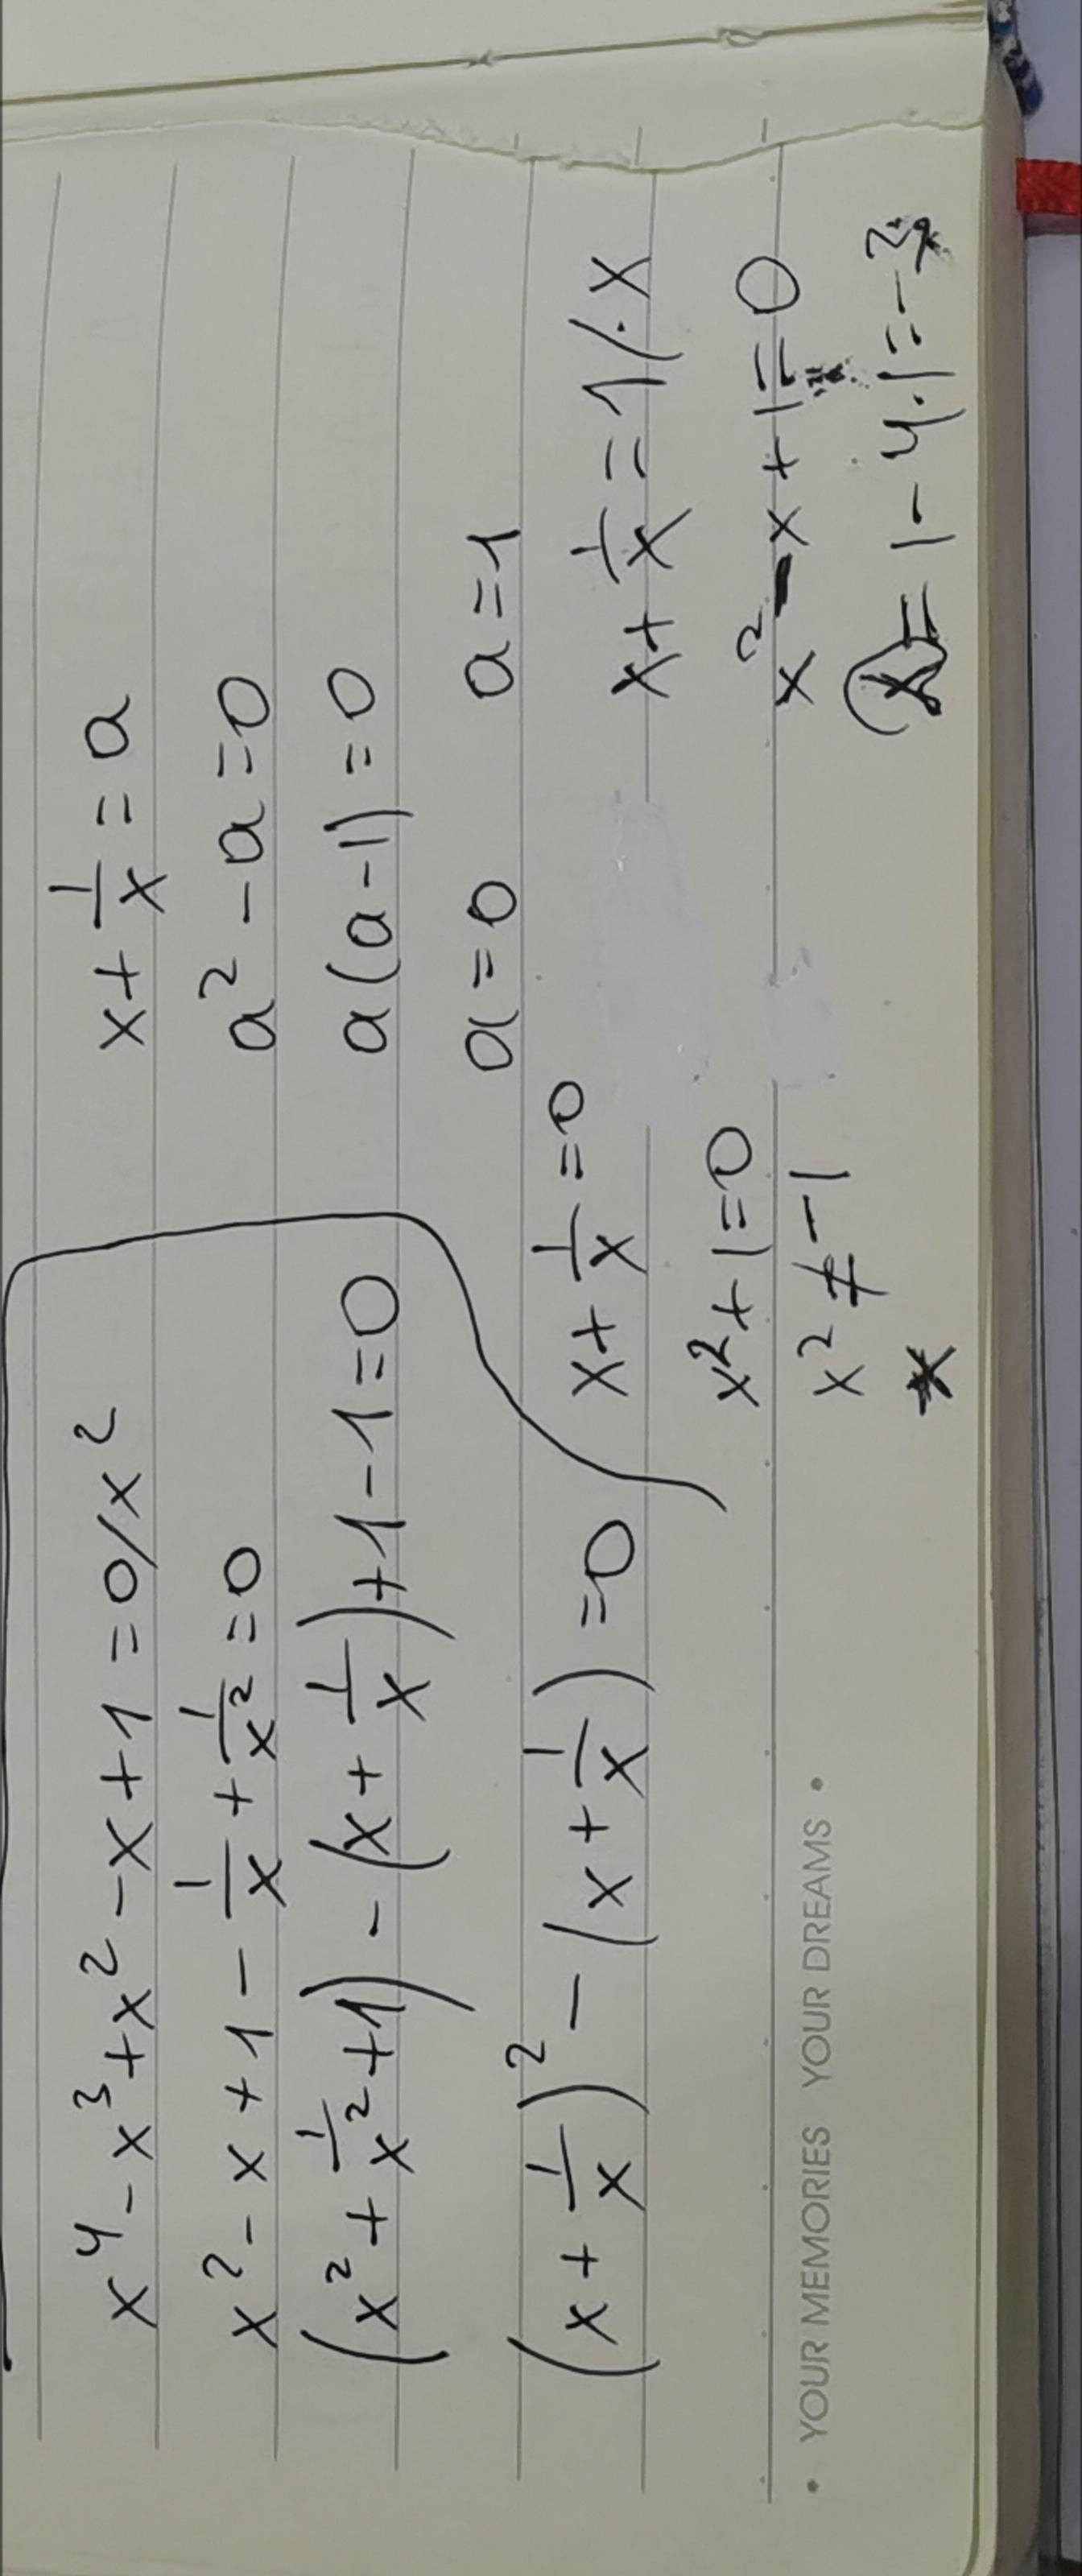 x⁴ - x³ + x² - x + 1 = 0 / x²
x² - x + 1 - 1/x + 1/x² = 0
(x² + 1/x² + 1) - (x + 1/x) + 1 - 1 = 0
(x + 1/x)² - (x + 1/x) = 0
x + 1/x = a
a² - a = 0
a(a - 1) = 0
a = 0 a = 1
x + 1/x = 0
x² + 1 = 0
x² ≠ -1
x + 1/x = 1 / · x
x² - x + 1 = 0
= 1 - 4 · 1 = -3
• YOUR MEMORIES YOUR DREAMS •